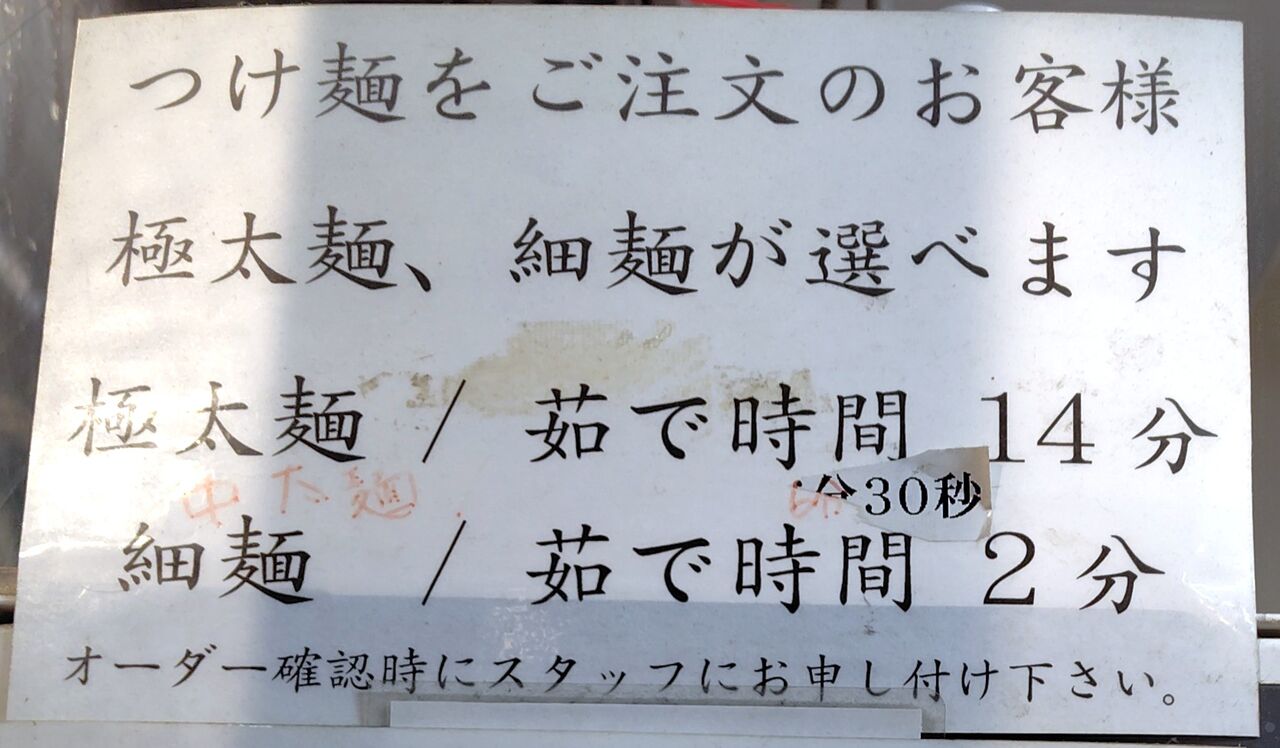 つけ麺をご注文のお客様
極太麺、細麺が選べます
極太麺 / 茹で時間 14分
中太麺
分30秒
細麺 / 茹で時間 2分
オーダー確認時にスタッフにお申し付け下さい。